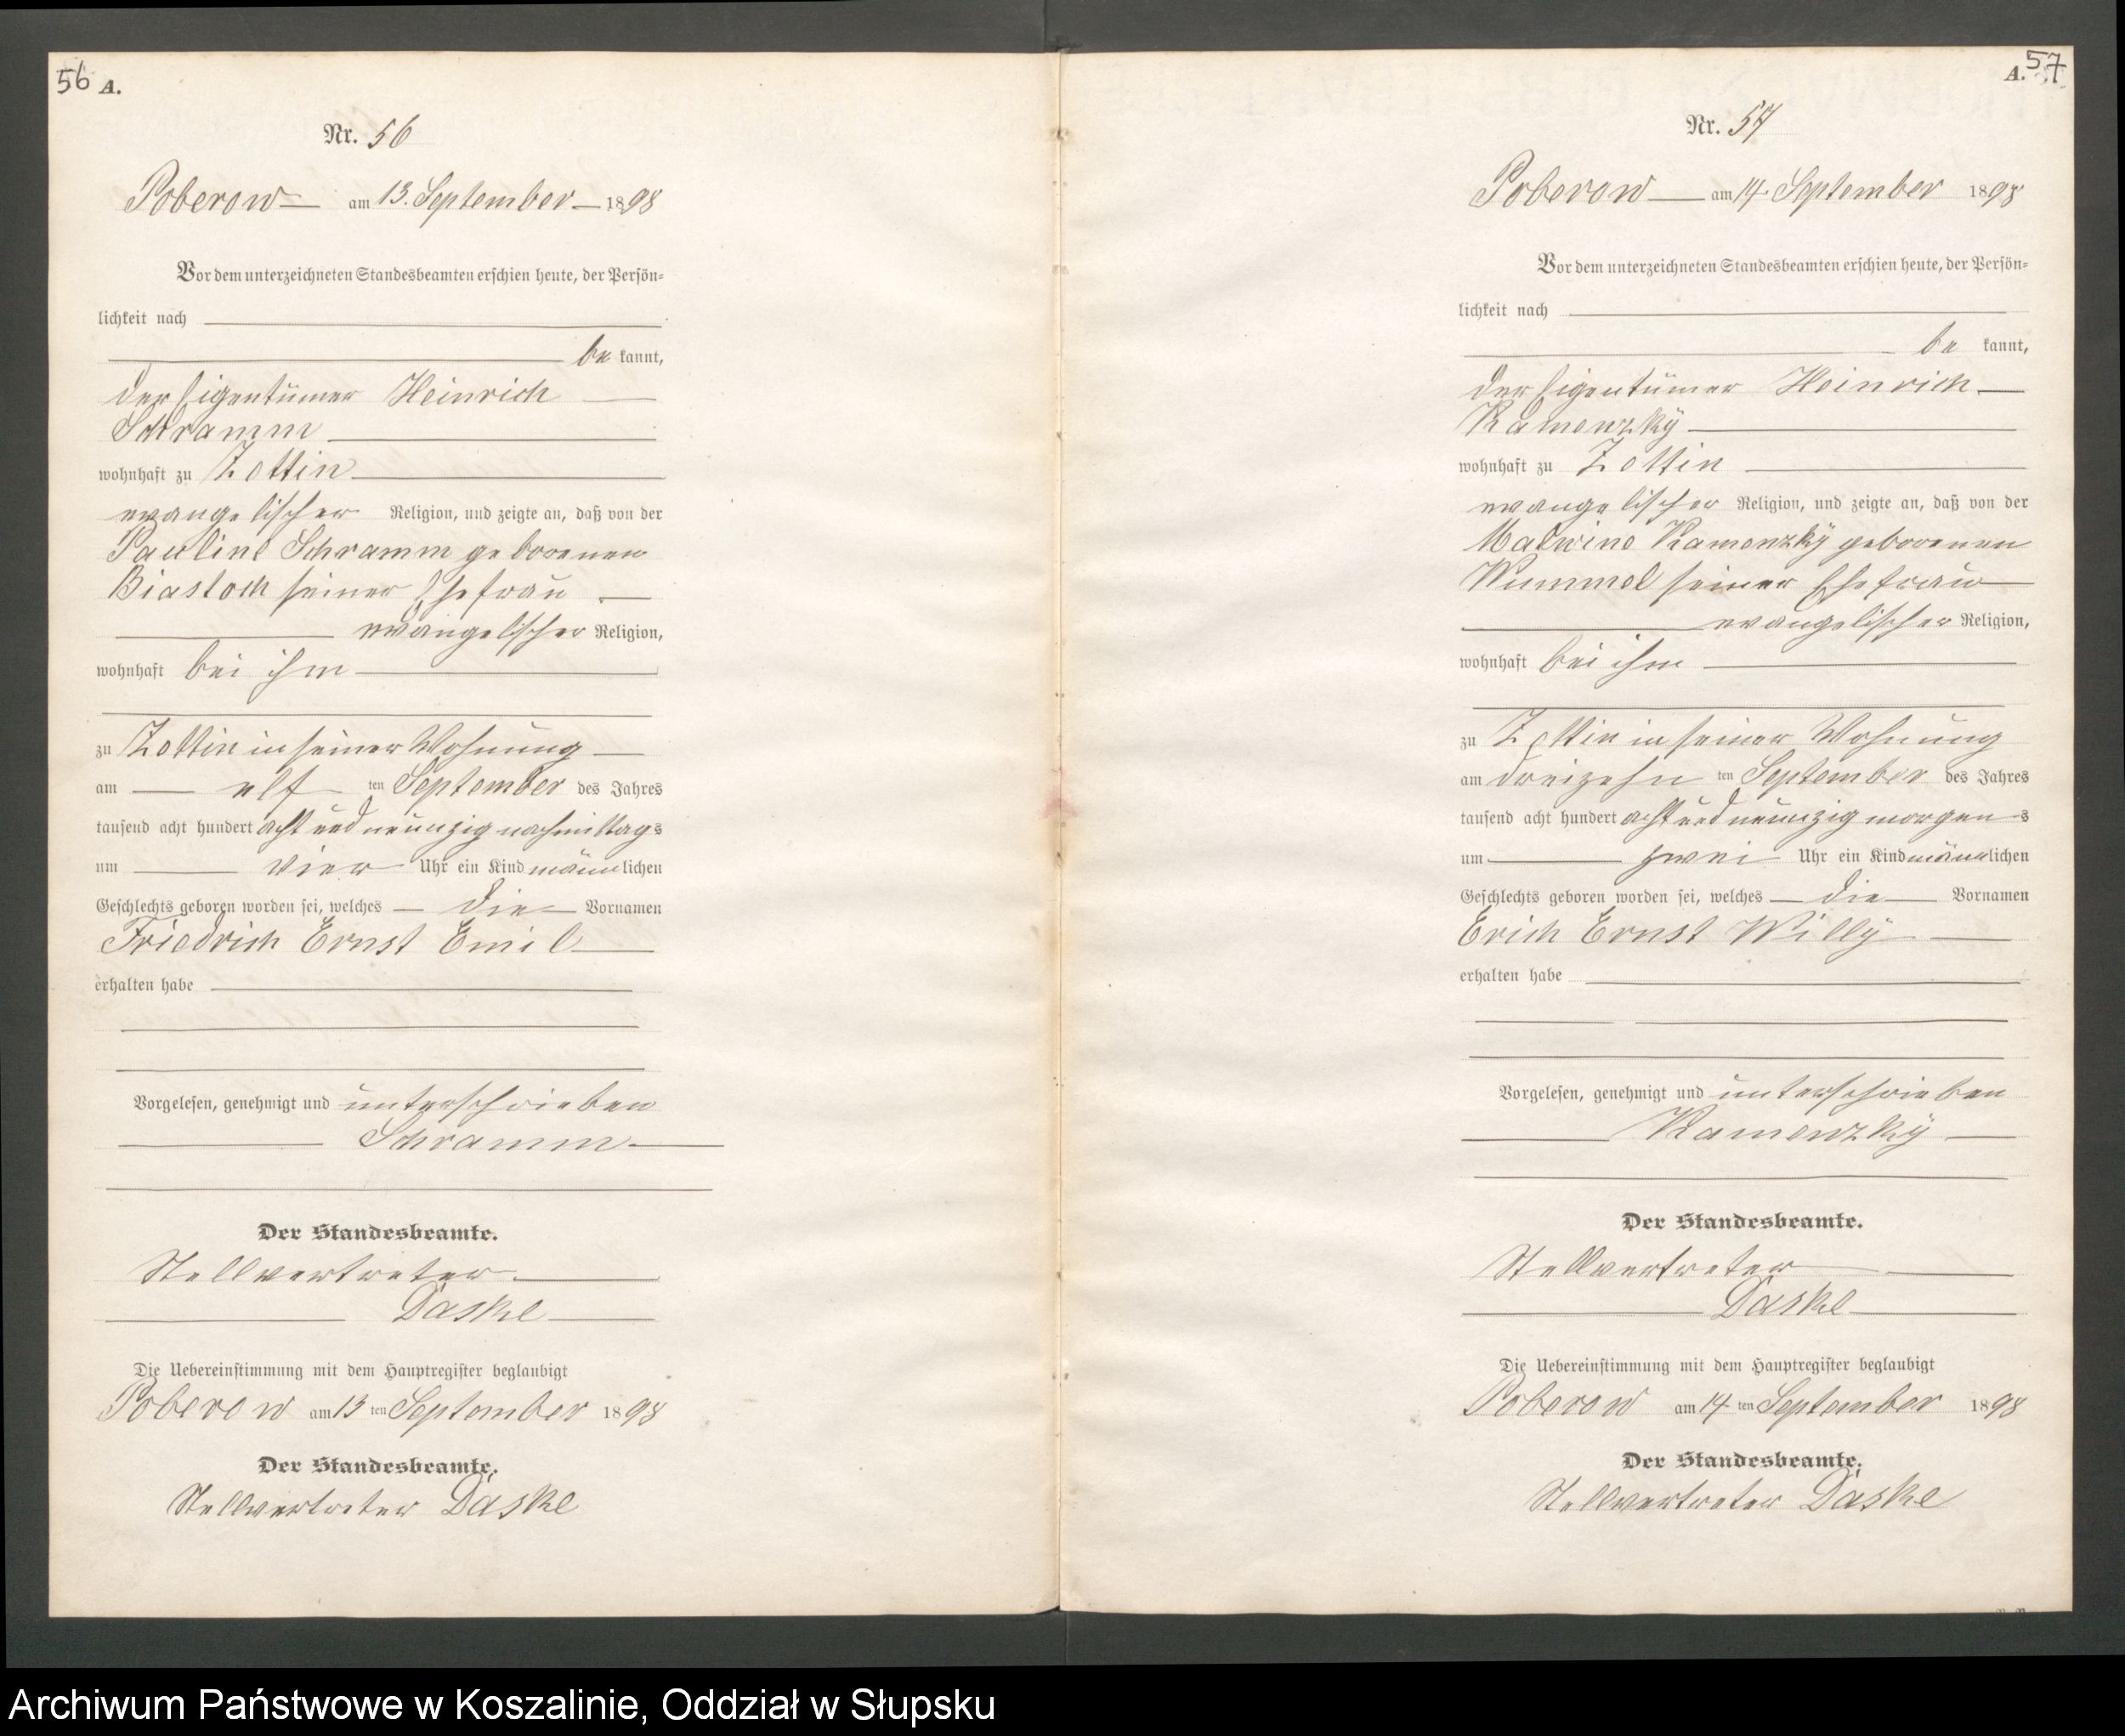 56 A.
Nr. 56
Poberow am 13. September 1898
Vor dem unterzeichneten Standesbeamten erschien heute, der Persön-
lichkeit nach
be kannt,
der Eigentümer Heinrich
Schramm
wohnhaft zu Zettin
evangelischer Religion, und zeigte an, daß von der
Pauline Schramm geborenen
Biastoch seiner Ehefrau
evangelischer Religion,
wohnhaft bei ihm
zu Zettin in seiner Wohnung
am elf ten September des Jahres
tausend acht hundert acht und neunzig nachmittags
um vier Uhr ein Kind männlichen
Geschlechts geboren worden sei, welches die Vornamen
Friedrich Ernst Emil
erhalten habe
Vorgelesen, genehmigt und unterschrieben
Schramm
Der Standesbeamte.
Stellvertreter
Daske
Die Uebereinstimmung mit dem Hauptregister beglaubigt
Poberow am 13 ten September 1898
Der Standesbeamte.
Stellvertreter Daske
A. 57
Nr. 57
Poberow am 14 September 1898
Vor dem unterzeichneten Standesbeamten erschien heute, der Persön-
lichkeit nach
be kannt,
der Eigentümer Heinrich
Kamenzky
wohnhaft zu Zettin
evangelischer Religion, und zeigte an, daß von der
Malwine Kamenzky geborenen
Wummel seiner Ehefrau
evangelischer Religion,
wohnhaft bei ihm
zu Zettin in seiner Wohnung
am dreizehn ten September des Jahres
tausend acht hundert acht und neunzig morgens
um zwei Uhr ein Kind männlichen
Geschlechts geboren worden sei, welches die Vornamen
Erich Ernst Willy
erhalten habe
Vorgelesen, genehmigt und unterschrieben
Kamenzky
Der Standesbeamte.
Stellvertreter
Daske
Die Uebereinstimmung mit dem Hauptregister beglaubigt
Poberow am 14 ten September 1898
Der Standesbeamte.
Stellvertreter Daske
Archiwum Państwowe w Koszalinie, Oddział w Słupsku